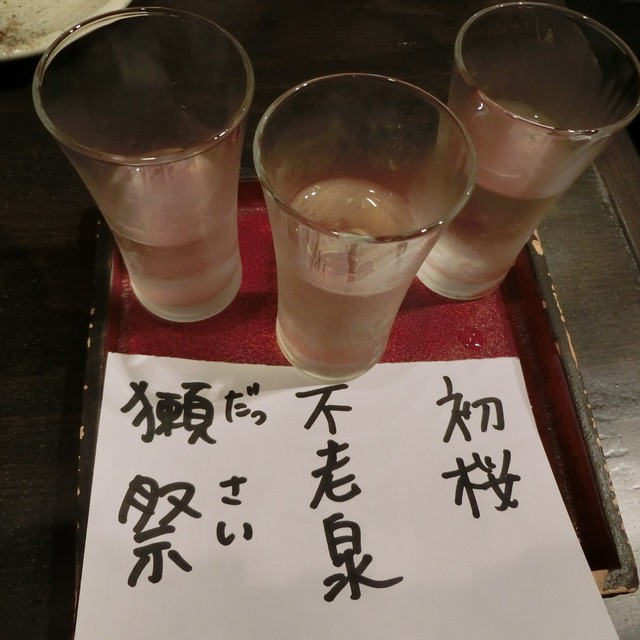 初桜
不老泉
獺祭
だっさい